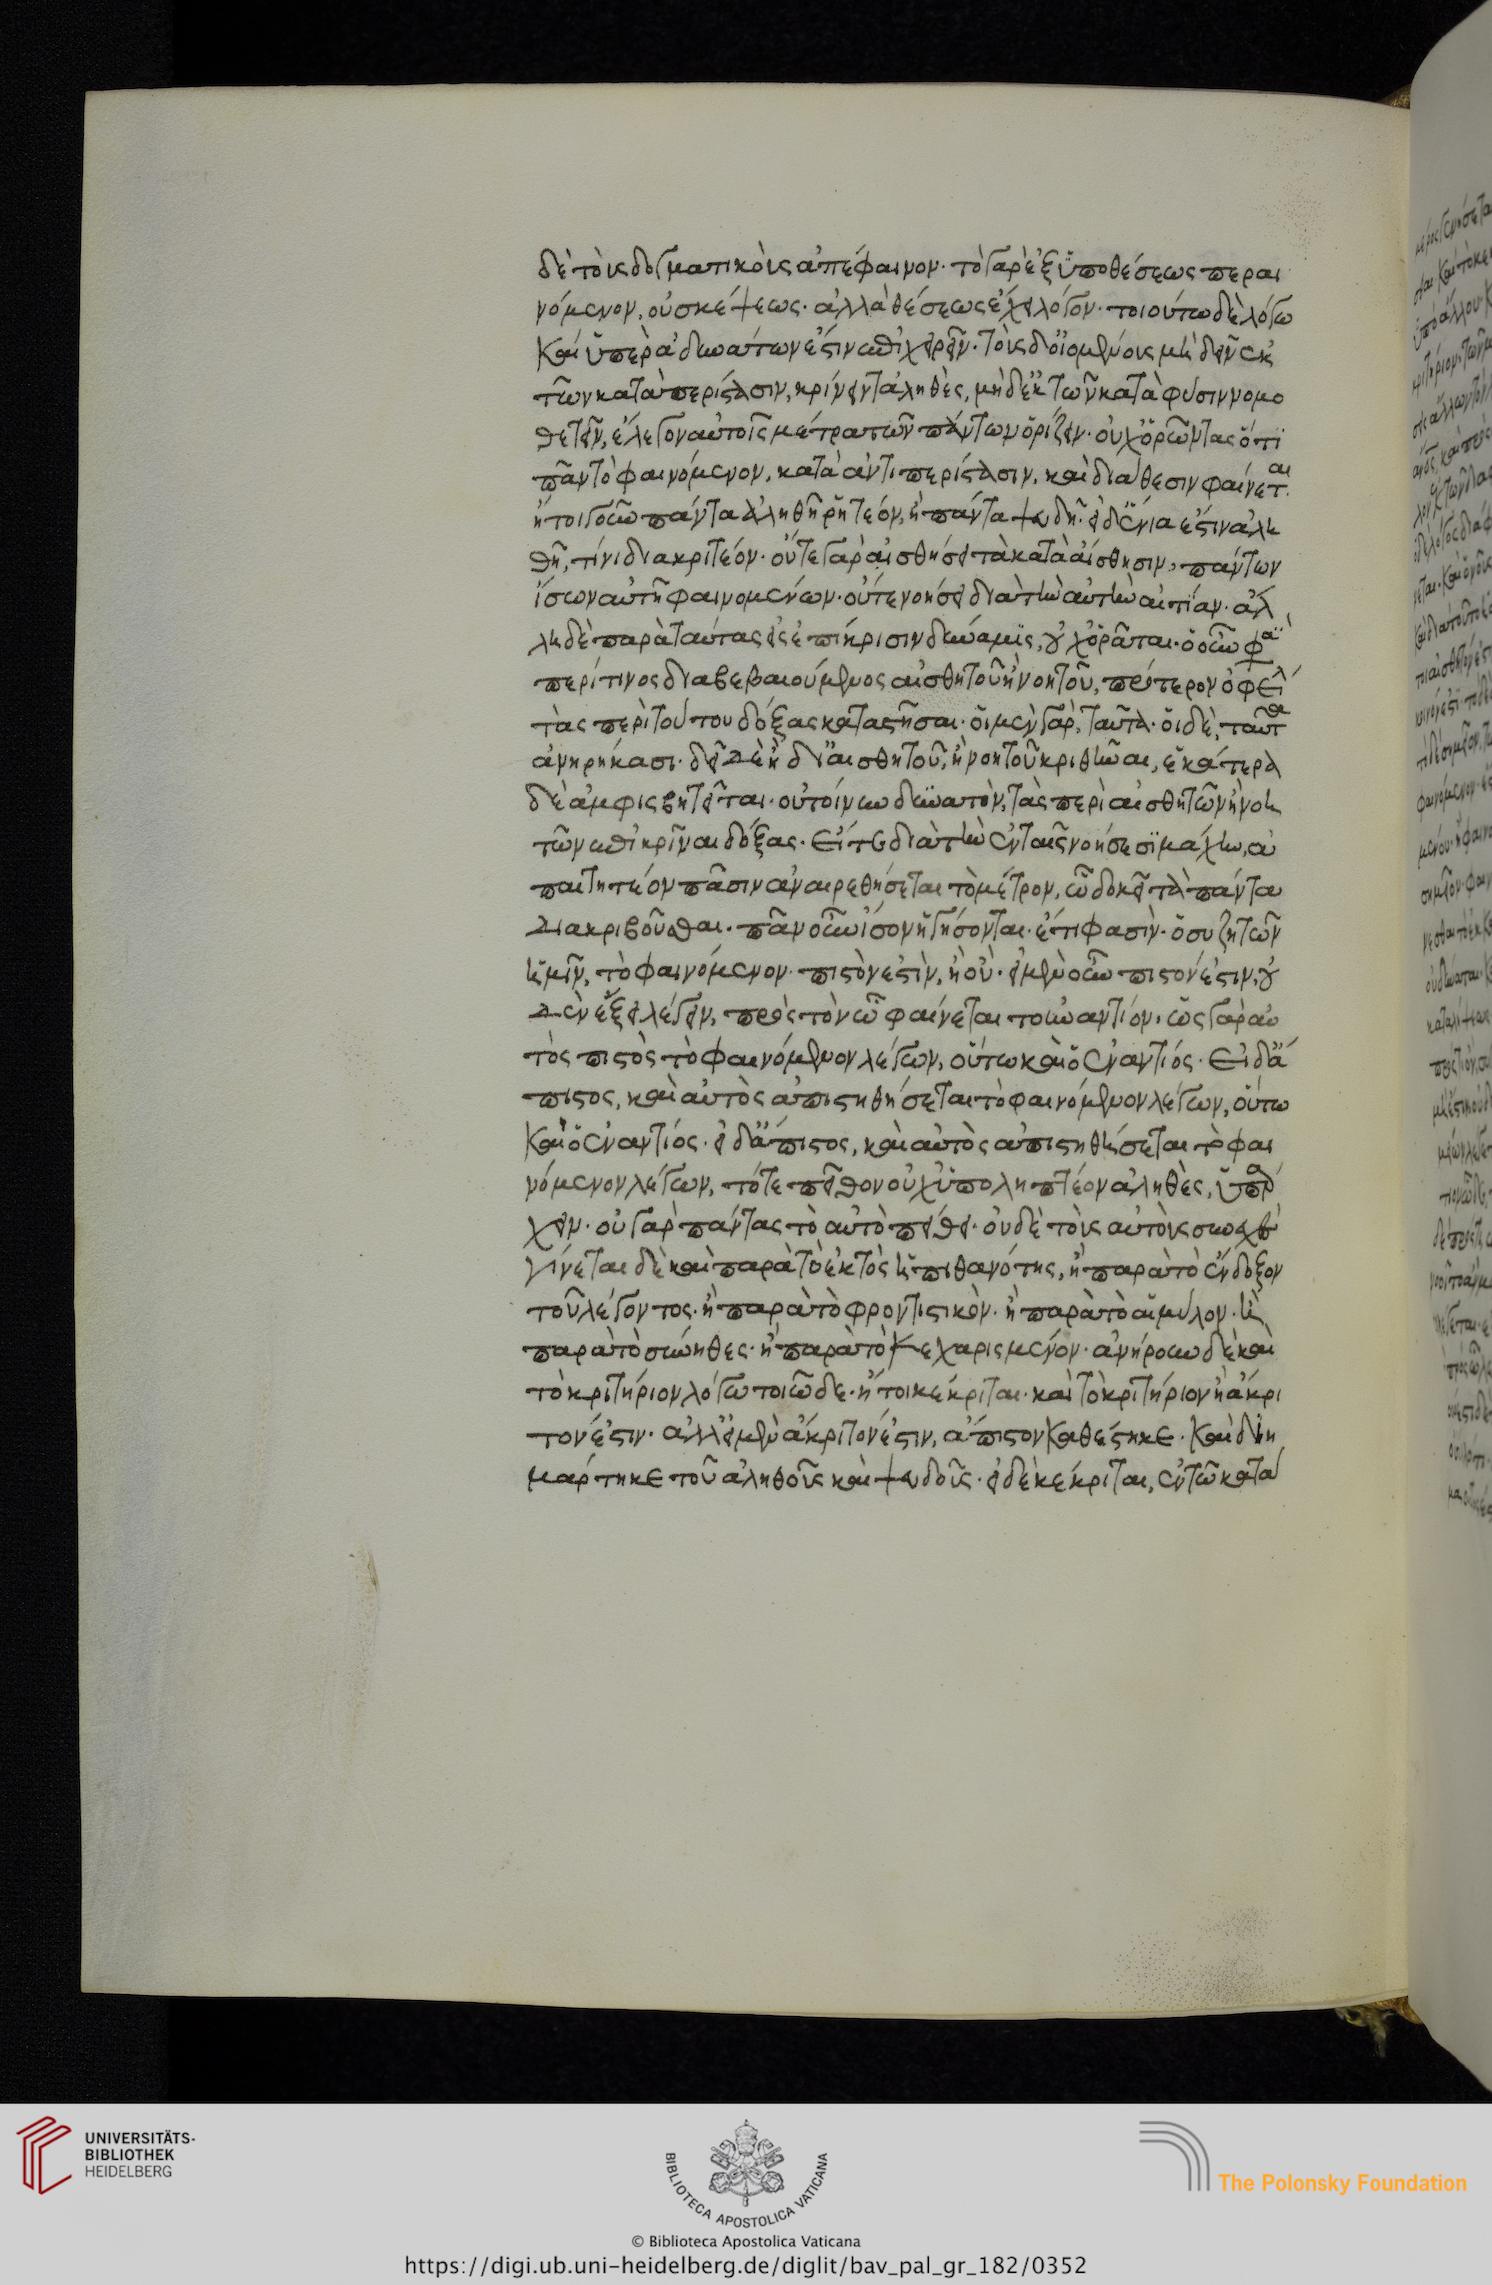 δὲ τοῖς δογματικοῖς ἀπέφαινον· τὸ γὰρ ἐξ ὑποθέσεως περαι
νόμενον, οὐ σκέψεως· ἀλλὰ θέσεως ἔχει λόγον· τοιούτω δὲ λόγω
καὶ ὑπὲρ ἀδυνάτων ἐστὶν ἐπιχειρεῖν· τοὺς δ' οἰομένους μὴ δεῖν ἐκ
τῶν κατὰ περίστασιν, κρίνειν τἀληθὲς, μὴ δ' ἐκ τῶν κατὰ φύσιν νομο
θετεῖν, ἔλεγον αὐτοῖς μέτρα τῶν πάντων ὁρίζειν· οὐχ ὁρῶντας ὅτι
πᾶν τὸ φαινόμενον, κατὰ ἀντιπερίστασιν, καὶ διάθεσιν φαίνεται·
ἤτοι γοῦν πάντα ἀληθῆ ῥητέον, ἢ πάντα ψευδῆ· εἰ δ' ἔνια ἐστὶν ἀλη
θῆ, τίνι διακριτέον· οὔτε γὰρ αἰσθήσει τὰ κατὰ αἴσθησιν, πάντων
ἴσων αὐτῆ φαινομένων· οὔτε νοήσει διὰ τὴν αὐτὴν αἰτίαν· ἄλ
λη δὲ παρὰ ταύτας εἰς ἐπίκρισιν δύναμις, οὐχ ὁρᾶται· ὁ οὖν φα
περί τινος διαβεβαιούμενος αἰσθητοῦ ἢ νοητοῦ, πρότερον ὀφείλει
τὰς περὶ τούτου δόξας καταστῆσαι· οἱ μὲν γὰρ, ταῦτα· οἱ δὲ, ταῦτα
ἀνῃρήκασι· δεῖ δὲ ἢ δι' αἰσθητοῦ, ἢ νοητοῦ κριθῆναι, ἑκάτερα
δὲ ἀμφισβητεῖται· οὐ τοίνυν δυνατὸν, τὰς περὶ αἰσθητῶν ἢ νοη
τῶν ἐπικρῖναι δόξας· εἴ τε διὰ τὴν ἐν ταῖς νοήσεσι μάχην, ἀ
πιστητέον πᾶσιν ἀναιρεθήσεται τὸ μέτρον, ὧ δοκεῖ τὰ πάντα
διακριβοῦσθαι· πᾶν οὖν ἴσον ἡγήσονται· ἔτι φασὶν· ὁ συζητῶν
ἡμῖν, τὸ φαινόμενον· πιστόν ἐστιν, ἢ οὐ· εἰ μὲν οὖν πιστόν ἐστιν, οὐ
δὲν ἕξει λέγειν, πρὸς τὸν ὧ φαίνεται τοὐναντίον· ὡς γὰρ αὐ
τὸς πιστὸς τὸ φαινόμενον λέγων, οὕτω καὶ ὁ ἐναντίος· εἰ δ' ἄ
πιστος, καὶ αὐτὸς ἀπιστηθήσεται τὸ φαινόμενον λέγων, οὕτω
καὶ ὁ ἐναντίος· εἰ δ' ἄπιστος, καὶ αὐτὸς ἀπιστηθήσεται τὸ φαι
νόμενον λέγων, τό τε πεῖθον οὐχ ὑποληπτέον ἀληθὲς, ὑπάρ
χειν· οὐ γὰρ πάντας τὸ αὐτὸ πείθει· οὐδὲ τοὺς αὐτοὺς συνεχὲς
γίνεται δὲ καὶ παρὰ τὸ ἐκτὸς ἡ πιθανότης, ἢ παρὰ τὸ ἔνδοξον
τοῦ λέγοντος· ἢ παρὰ τὸ φροντιστικὸν· ἢ παρὰ τὸ αἱμύλον· ἢ
παρὰ τὸ σύνηθες· ἢ παρὰ τὸ κεχαρισμένον· ἀνῄρουν δὲ καὶ
τὸ κριτήριον λόγω τοιῶδε· ἤτοι κέκριται· καὶ τὸ κριτήριον ἢ ἄκρι
τόν ἐστιν· ἀλλ' εἰ μὲν ἄκριτόν ἐστιν, ἄπιστον καθέστηκε· καὶ διη
μάρτηκε τοῦ ἀληθοῦς καὶ ψευδοῦς· εἰ δὲ κέκριται, ἓν τῶν κατὰ
UNIVERSITÄTS-
BIBLIOTHEK
HEIDELBERG
BIBLIOTECA APOSTOLICA VATICANA
The Polonsky Foundation
© Biblioteca Apostolica Vaticana
https://digi.ub.uni-heidelberg.de/diglit/bav_pal_gr_182/0352